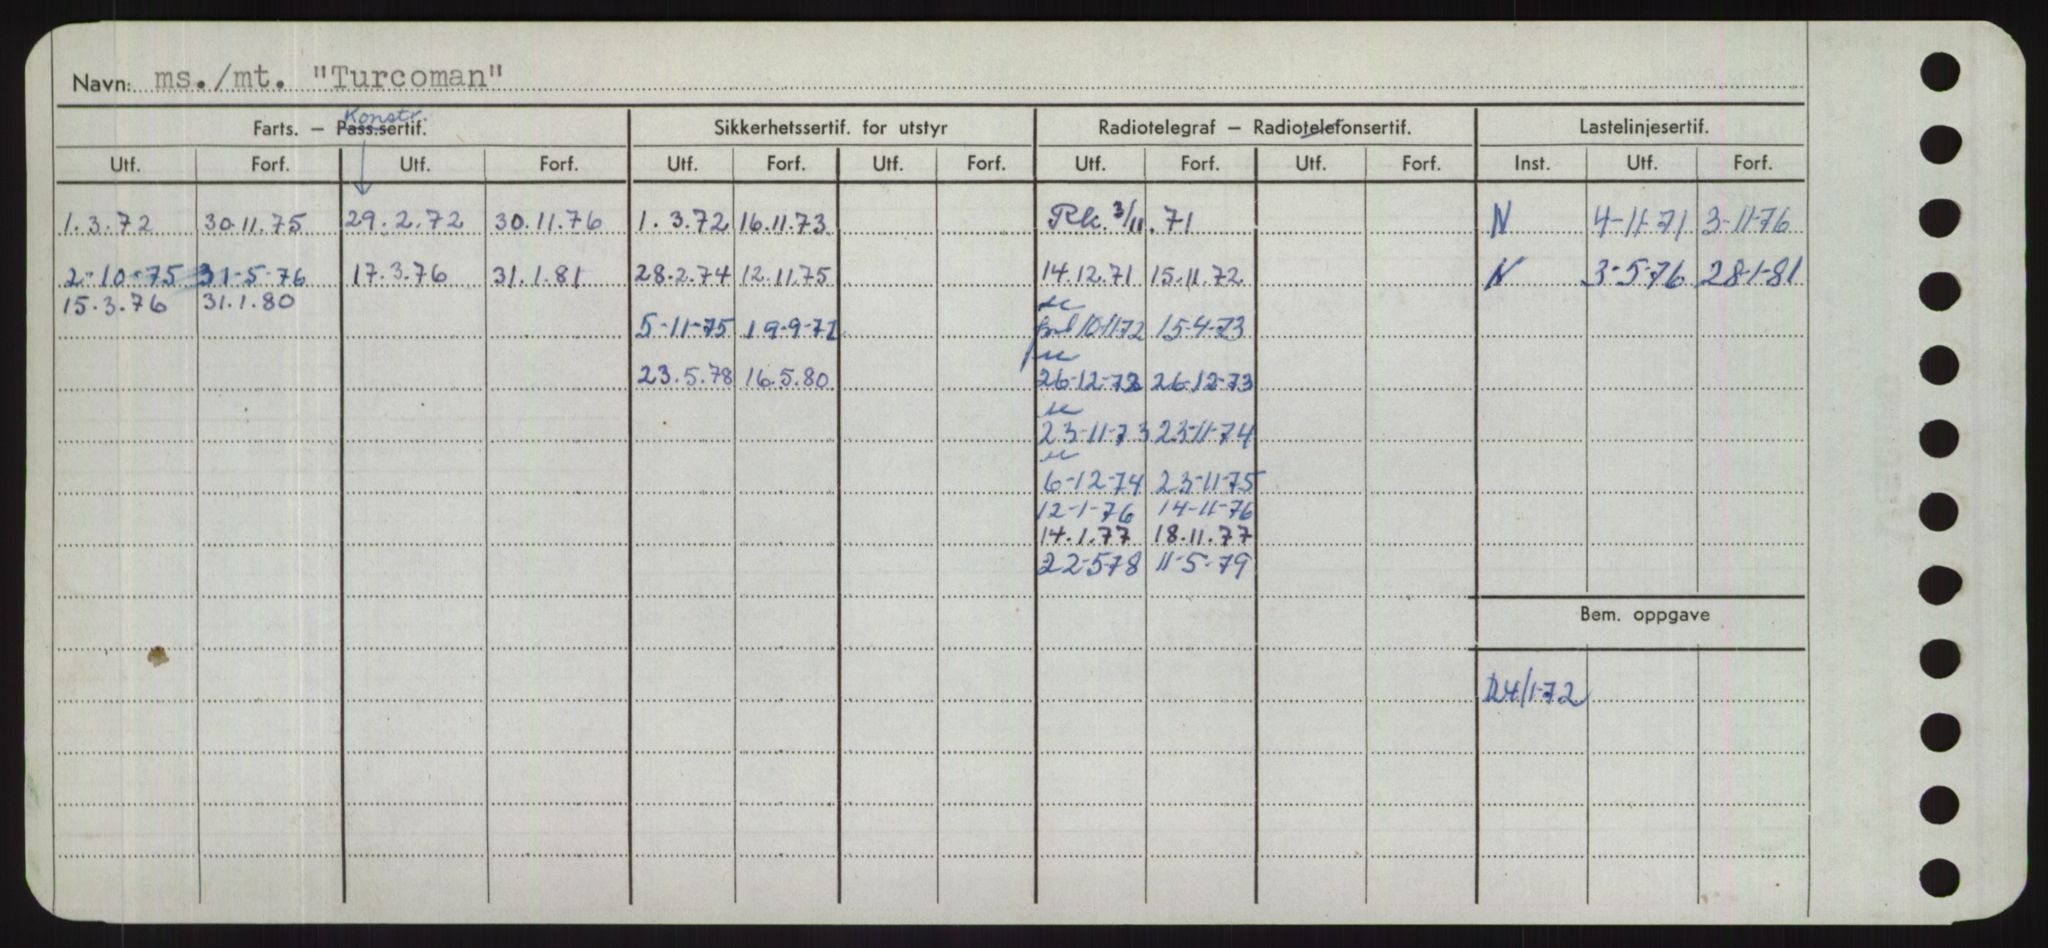 Navn: ms./mt. "Turcoman"
Konstr.
Farts. — Pass.sertif. Sikkerhetssertif. for utstyr Radiotelegraf — Radiotelefonsertif. Lastelinjesertif.
Utf. Forf. Utf. Forf. Utf. Forf. Utf. Forf. Utf. Forf. Utf. Forf. Inst. Utf. Forf.
1.3.72 30.11.75 29.2.72 30.11.76 1.3.72 16.11.73 Rk. 3/11.71 N 4-11-71 3-11-76
2-10-75 31-5-76 17.3.76 31.1.81 28.2.74 12.11.75 14.12.71 15.11.72 N 3-5-76 28-1-81
15.3.76 31.1.80
5-11-75 19-9-77 10-11-72 15-4-73
23.5.78 16.5.80 26-12-72 26-12-73
23-11-73 23-11-74
6-12-74 23-11-75
12-1-76 14-11-76
14.1.77 18.11.77
22-5-78 11-5-79
Bem. oppgave
24/1-72